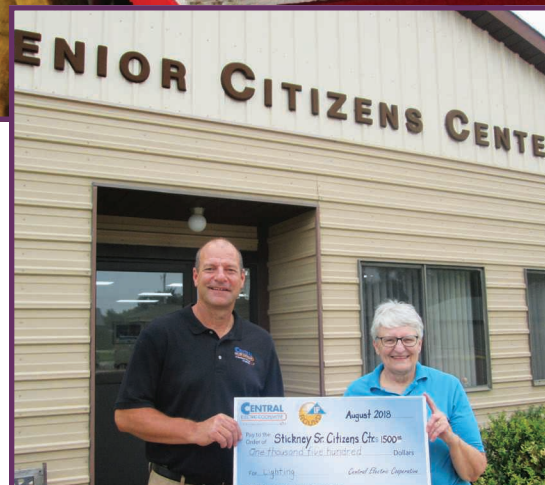 ENIOR CITIZENS CENTE
CENTRAL
ELECTRIC COOPERATIVE
August 2018
Pay to the
Order of Stickney Sr. Citizens Ctr. 1500⁰⁰
One thousand five hundred Dollars
For Lighting Central Electric Cooperative